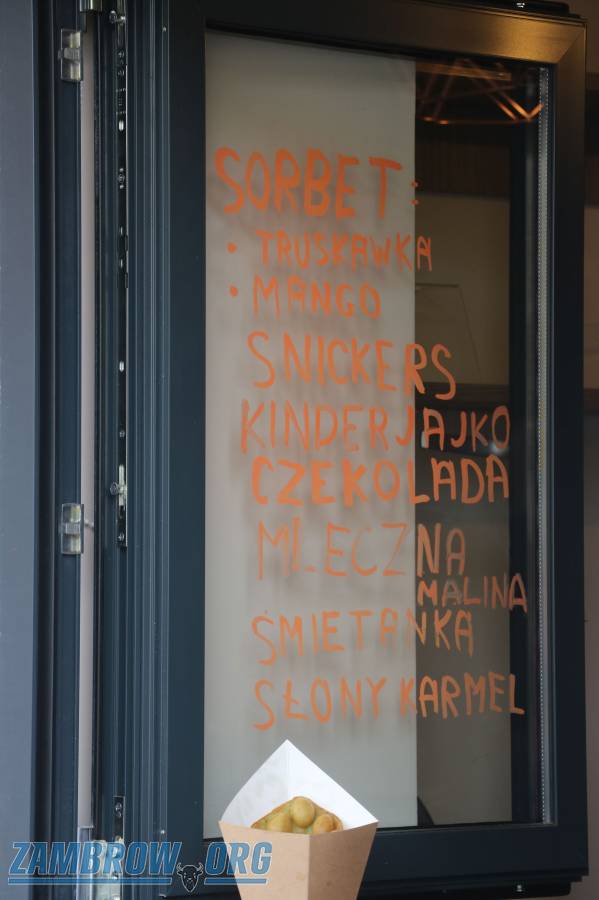 SORBET:
• TRUSKAWKA
• MANGO
SNICKERS
KINDERJAJKO
CZEKOLADA
MLECZNA
MALINA
ŚMIETANKA
SŁONY KARMEL
ZAMBROW.ORG